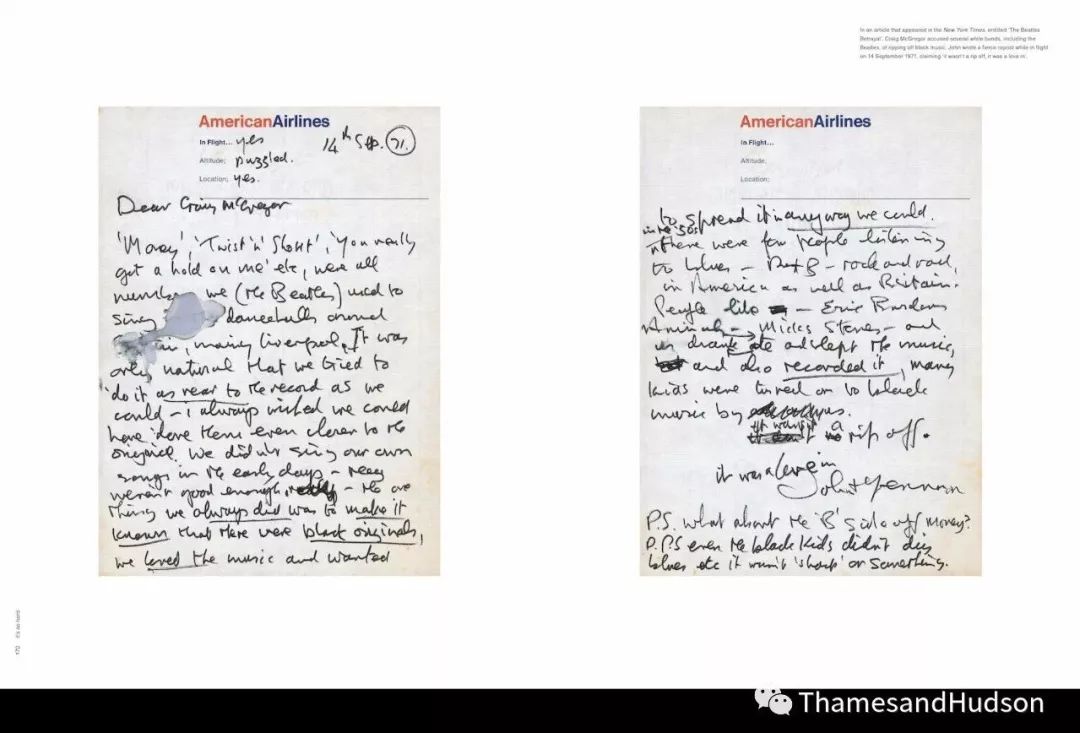 In an article that appeared in the New York Times, entitled 'The Beatles
Betrayal', Craig McGregor accused several white bands, including the
Beatles, of ripping off black music. John wrote a fierce riposte while in flight
on 14 September 1971, claiming 'it wasn't a rip off, it was a love in'.
AmericanAirlines
In Flight... yes
14th Sep. 71.
Altitude; puzzled.
Location; yes.
Dear Craig McGregor
'Money', 'Twist 'n' Shout', 'You really
got a hold on me' etc, were all
numbers we (the Beatles) used to
sing dancehalls around
, mainly Liverpool. It was
only natural that we tried to
do it as near to the record as we
could – i always wished we could
have done them even closer to the
original. We didn't sing our own
songs in the early days – they
weren't good enough, – the one
thing we always did was to make it
known that there were black originals,
we loved the music and wanted
AmericanAirlines
In Flight...
Altitude;
Location;
to spread it in any way we could.
in the '50s
there were few people listening
to blues – R+B – rock and roll,
in America as well as Britain.
People like – Eric Burdons
Animals – Micks Stones – and
us drank ate and slept the music,
and also recorded it, many
kids were turned on to black
music by us.
it wasn't a rip off.
it was a love in
John Lennon
P.S. what about the 'B' side of Money?
P.P.S even the black kids didn't dig
blues etc it wasn't 'sharp' or something.
170 it's so hard
ThamesandHudson